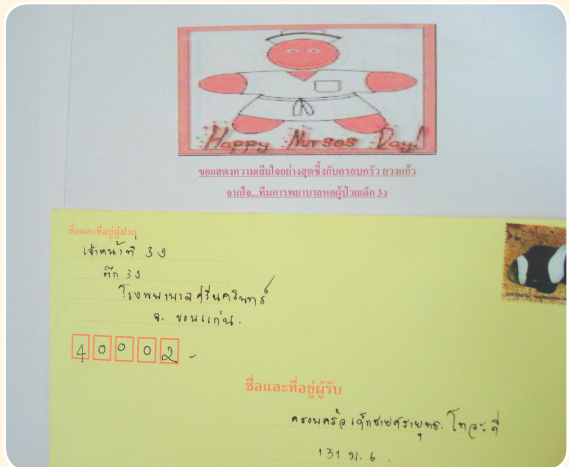 Happy Nurses Day!
ขอแสดงความเสียใจอย่างสุดซึ้งกับครอบครัว ยวงแก้ว
จากใจ...ทีมการพยาบาลหอผู้ป่วยเด็ก 3ง
ชื่อและที่อยู่ผู้ฝาก
เจ้าหน้าที่ 3ง
ตึก 3ง
โรงพยาบาลศรีนครินทร์
จ. ขอนแก่น.
40002
ชื่อและที่อยู่ผู้รับ
ครอบครัว เด็กชายศรายุทธ
131 ม. 6